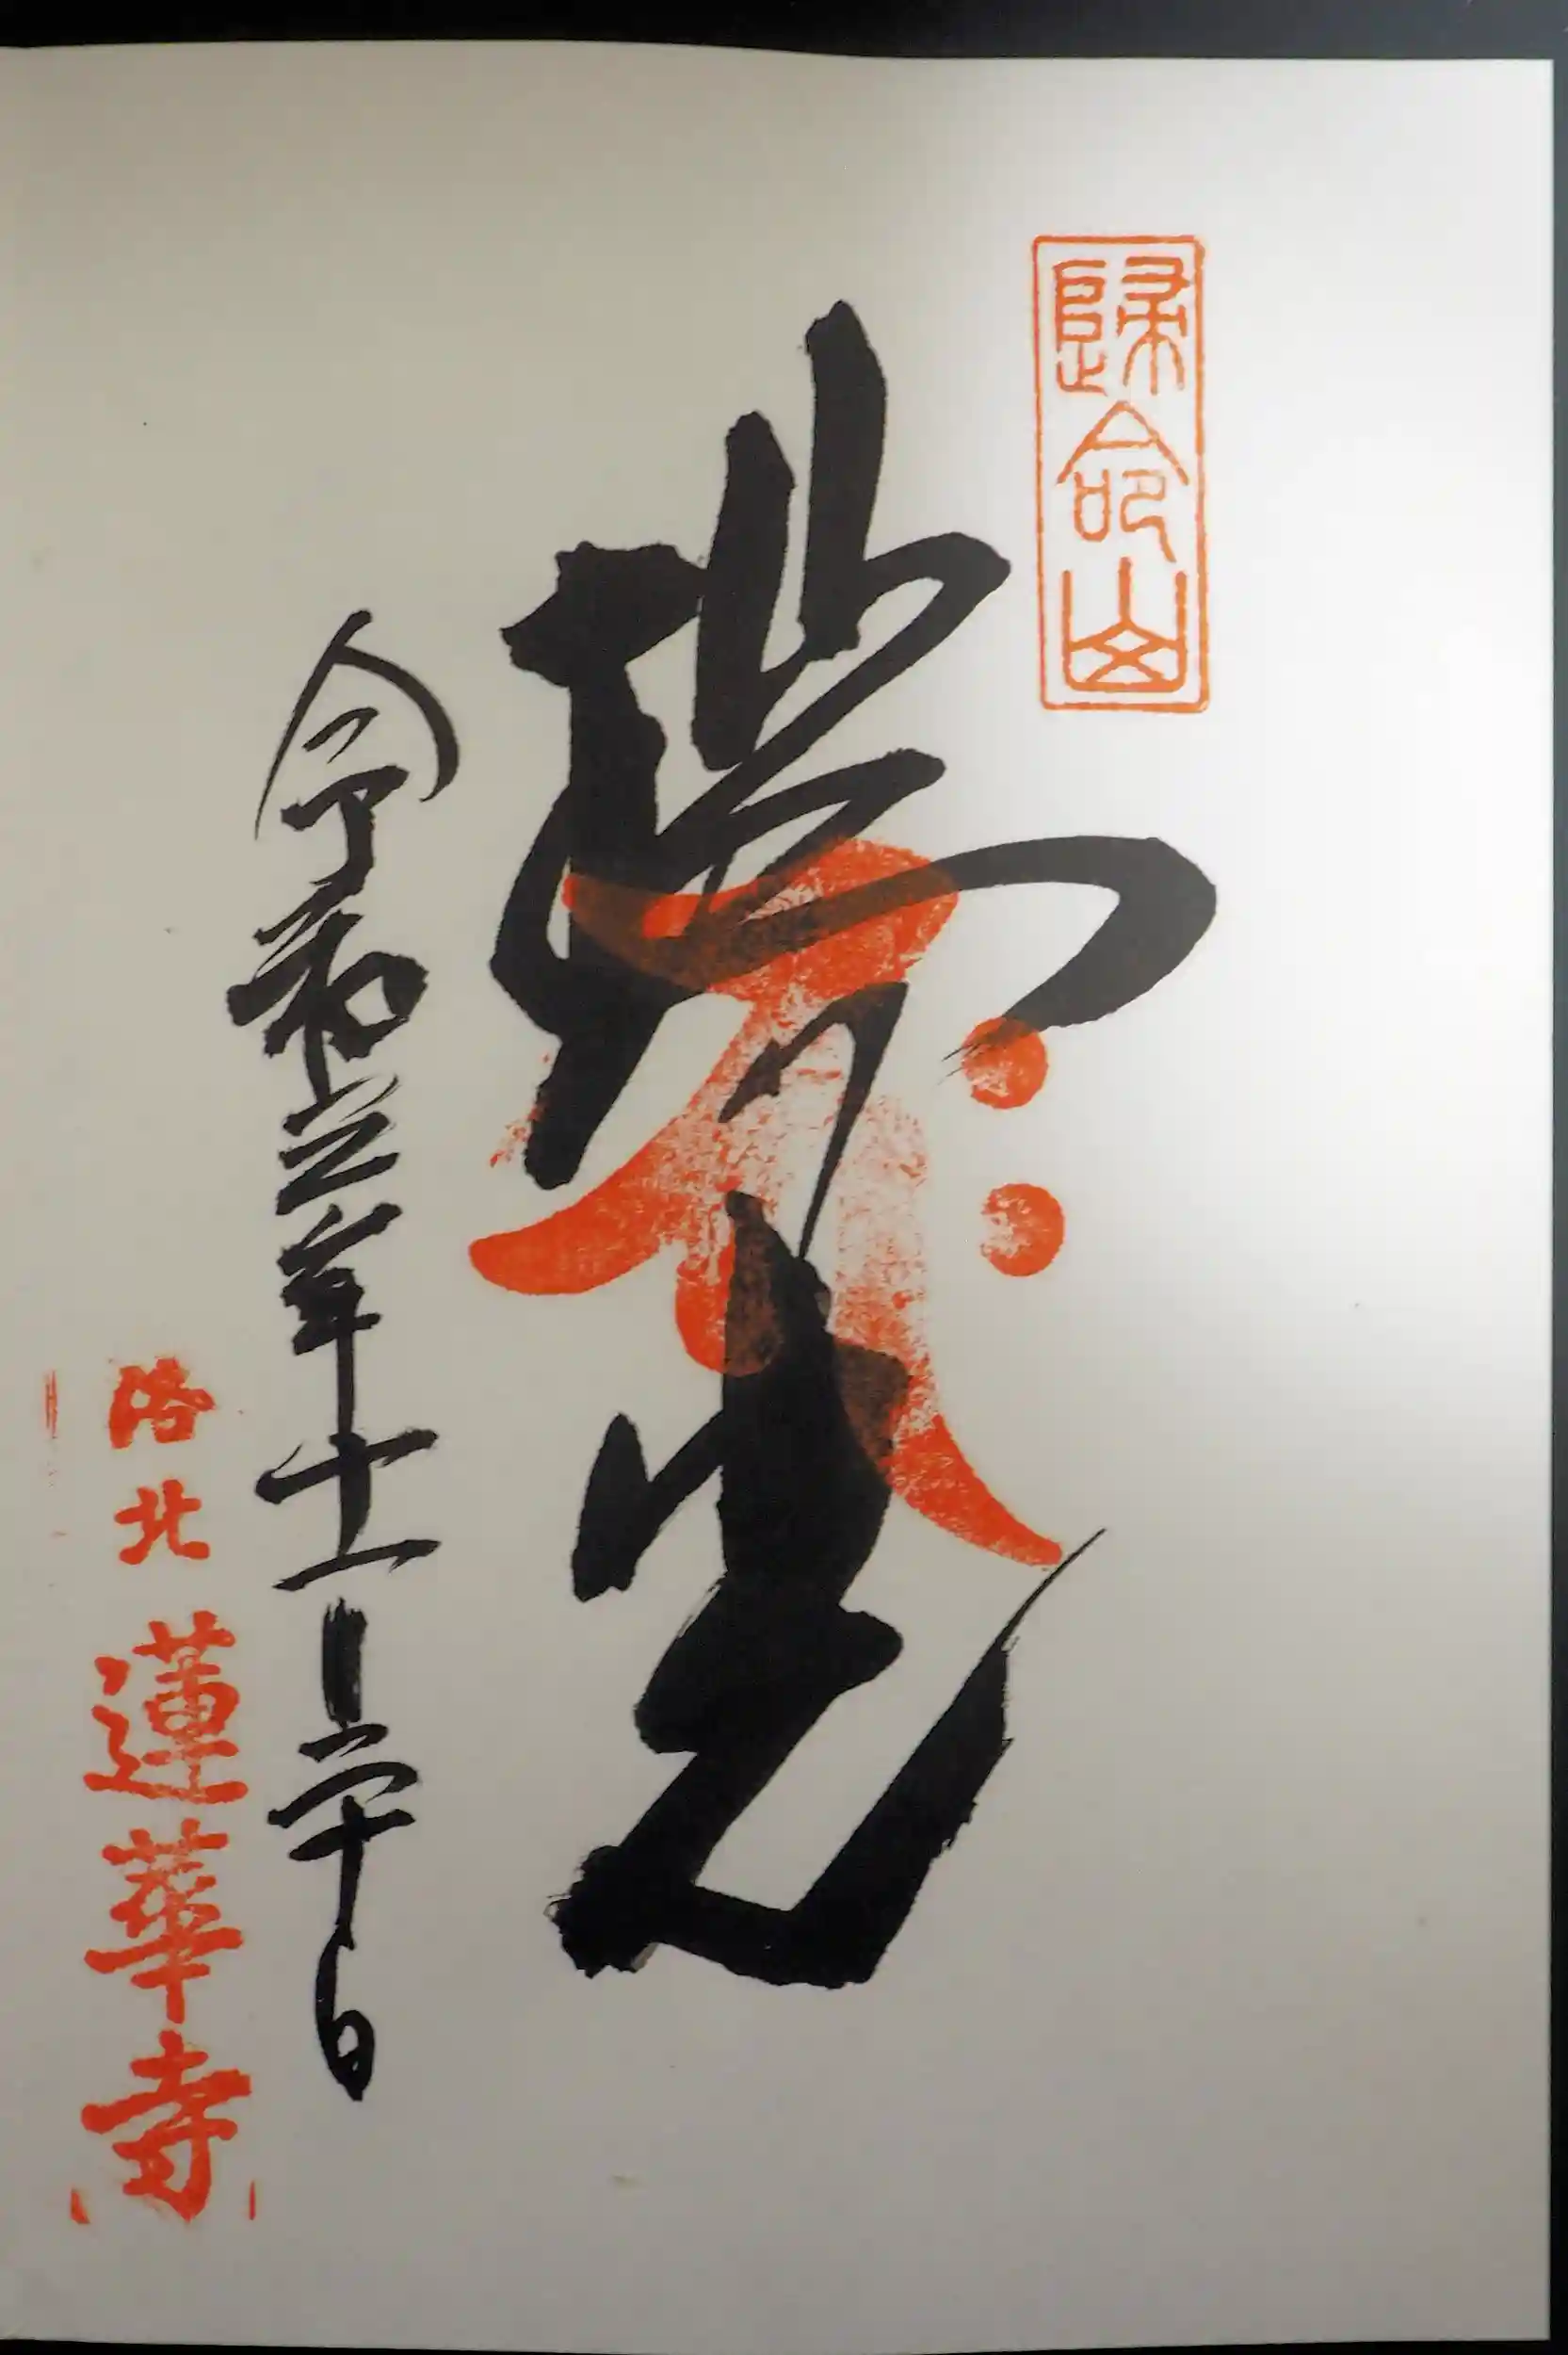 歸命山
瑞光
令和三年十一月二十日
洛北 蓮華寺